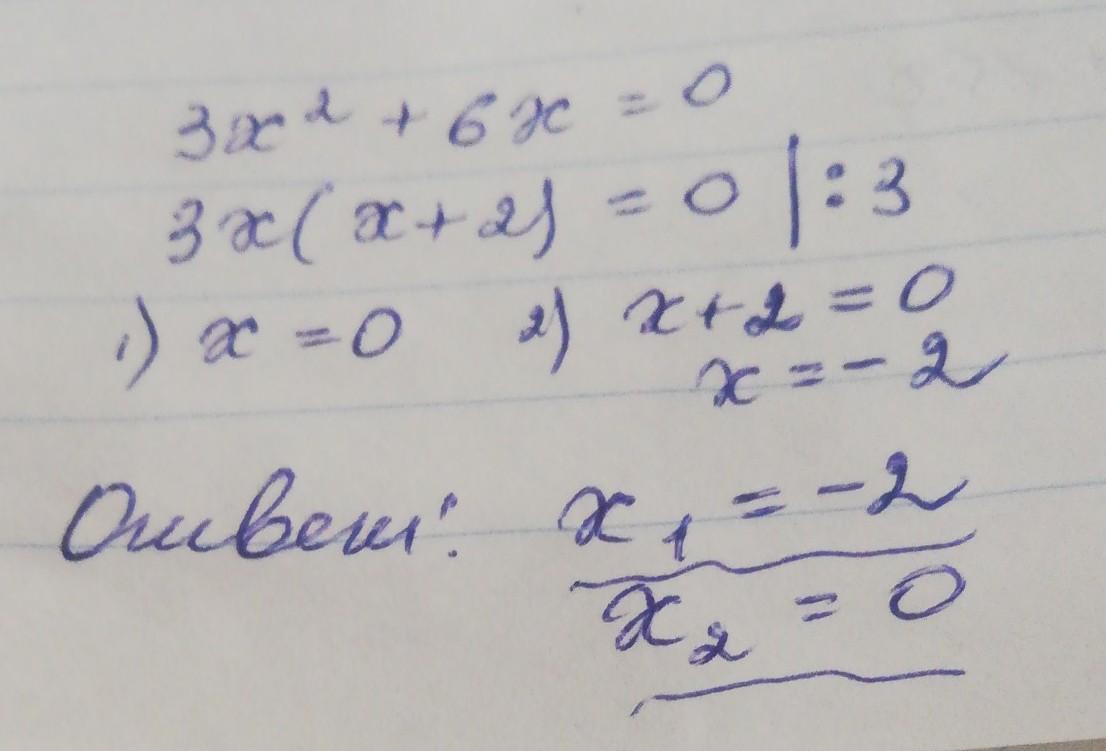 3x² + 6x = 0
3x(x+2) = 0 | : 3
1) x = 0 2) x+2 = 0
x = -2
Ответ: x₁ = -2
x₂ = 0